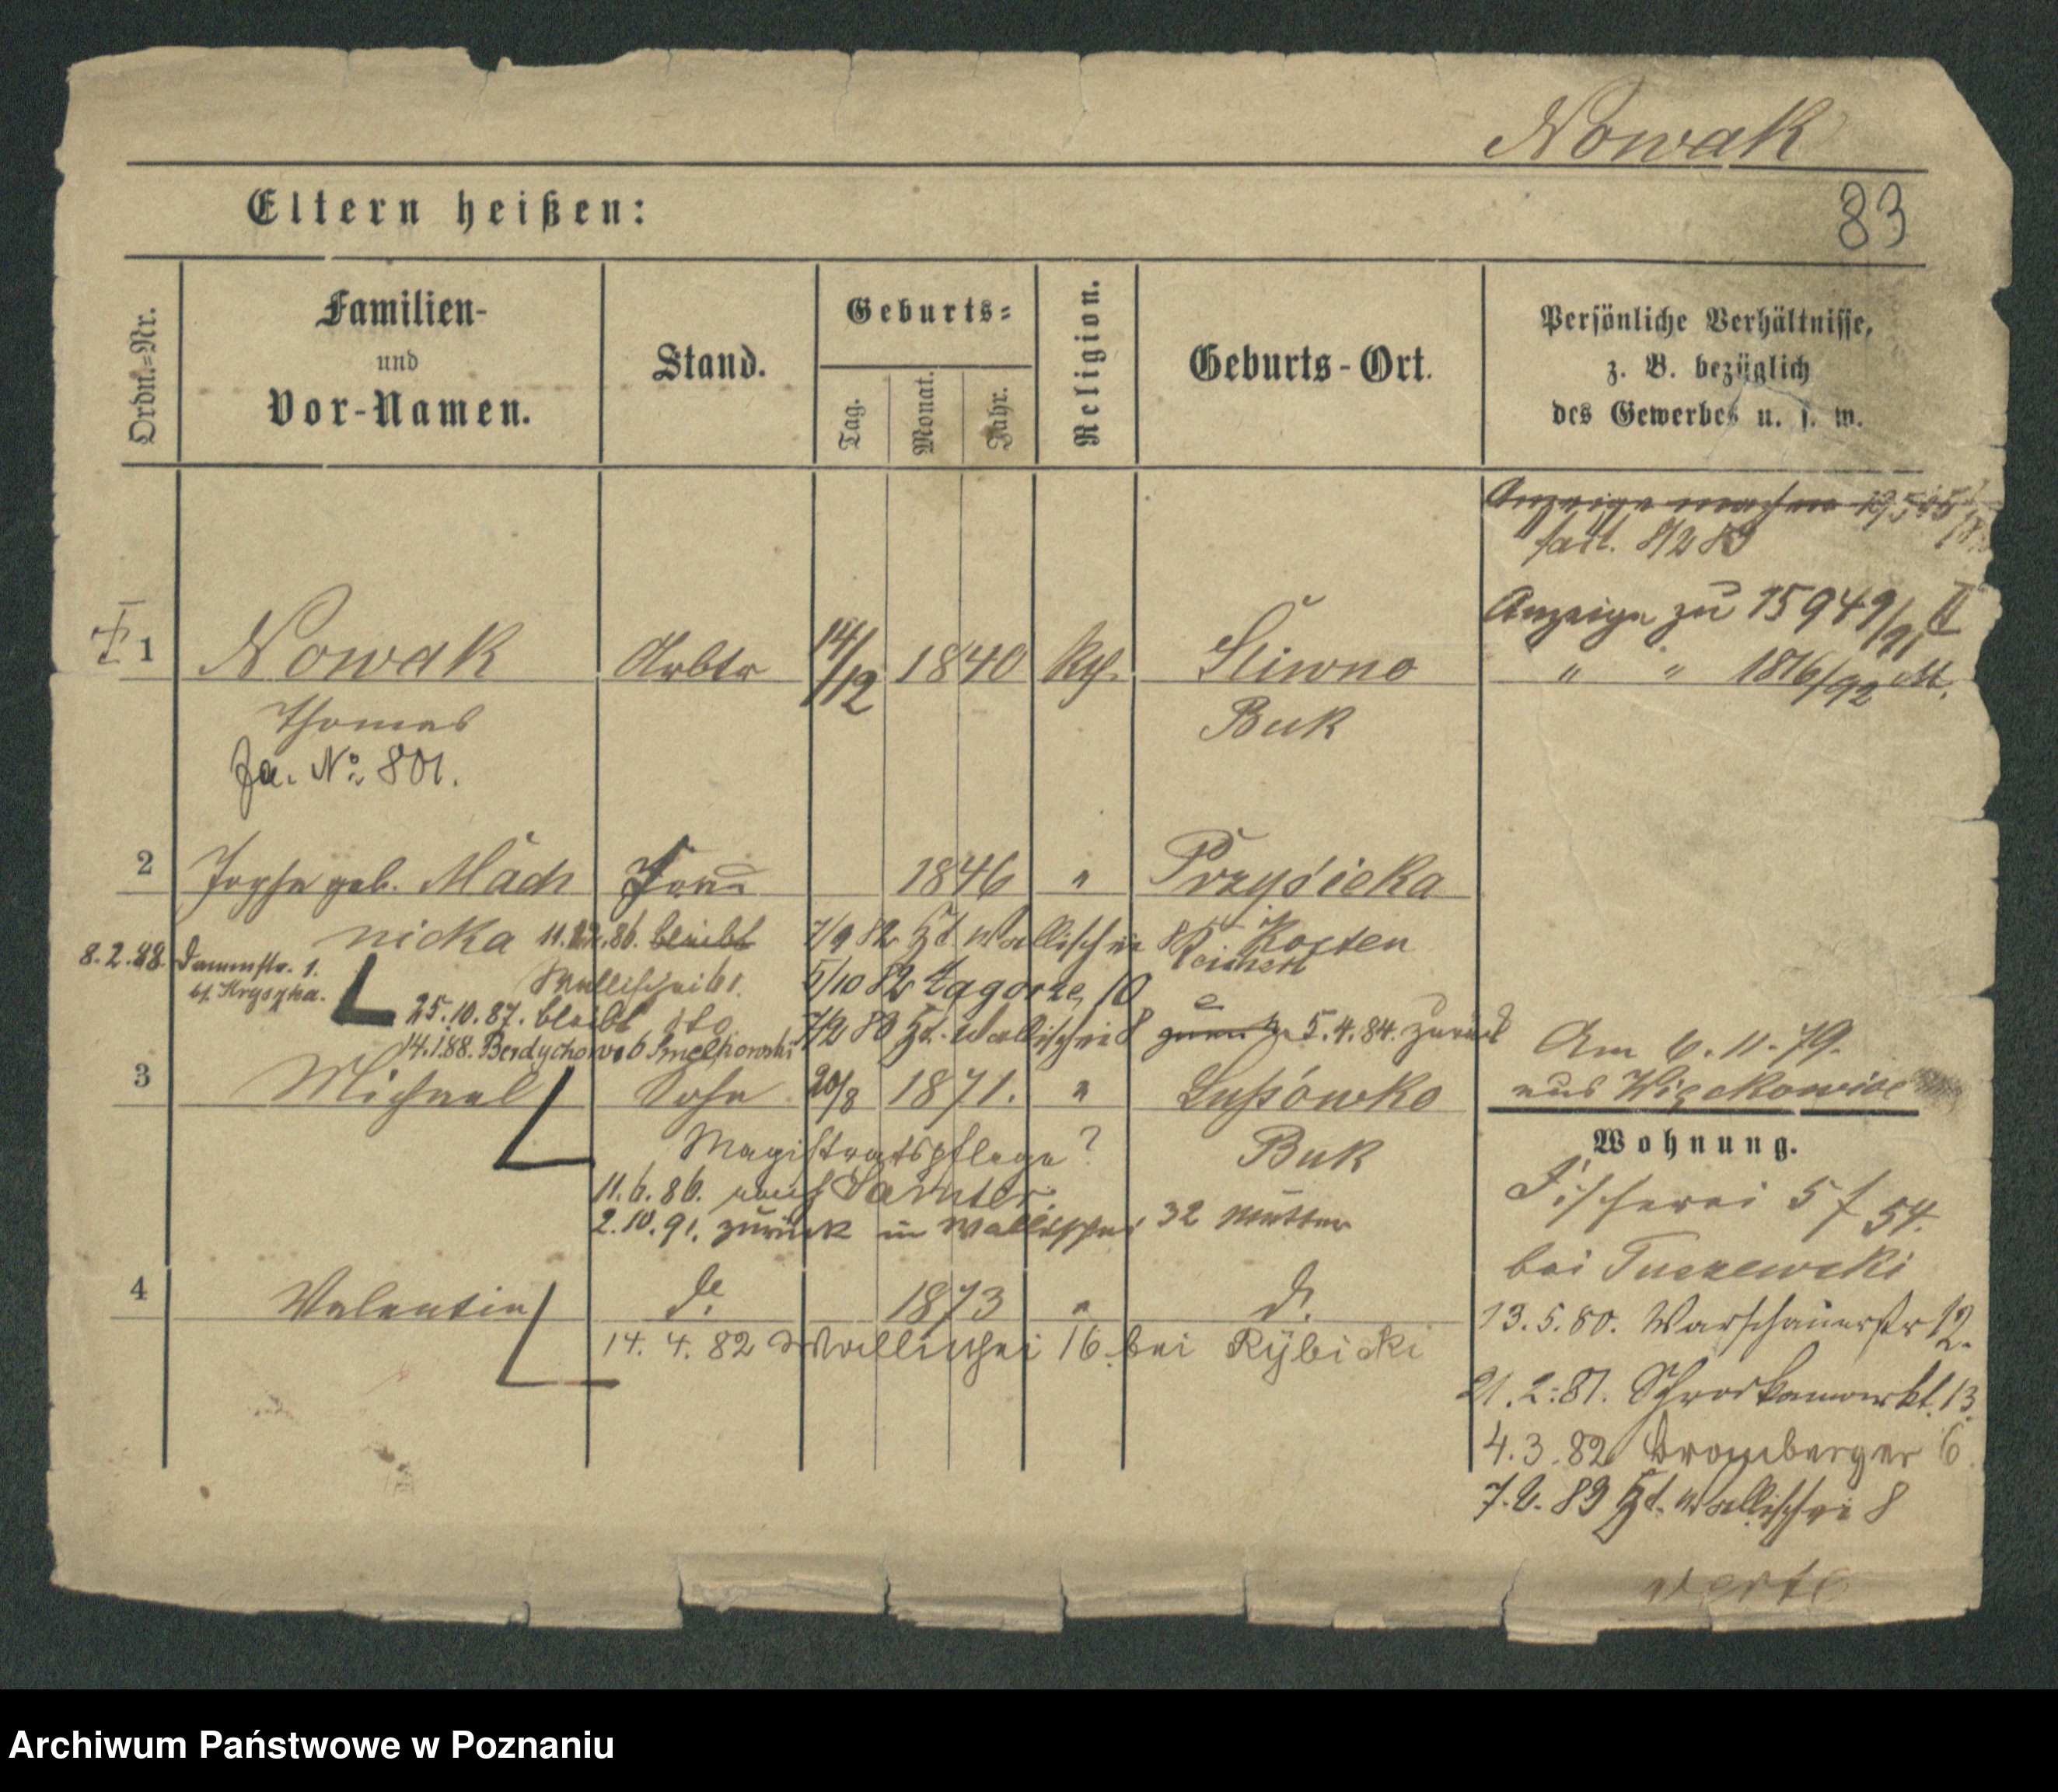 Nowak
Eltern heißen:
83
Ordn.=Nr.
Familien-
und
Vor-Namen.
Stand.
Geburts=
Tag.
Monat.
Jahr.
Religion.
Geburts-Ort.
Persönliche Verhältnisse,
z. B. bezüglich
des Gewerbes u. s. w.
Anzeige machen
8/2 83
Anzeige zu 15949/91 II
" " 1816/92 M.
1 Nowak Arbtr 14/12 1840 Kth. Sliwno
Thomas Buk
Ja. No. 801.
2 geb. Mäch Frau 1846 " Przysieka
nicka 11. 86. bleibt 7/9 82 Wallischei 8 Kosten
8.2.88. Dammstr. 1. Wallischei 61. 5/10 82 Zagorze 10
bf. Kryszka.
25.10.87. bleibt 7/2 83 Wallischei 8 5.4.84. zurück
14.1.88. Berdychowo 6 Smelkowski
Am 6.11.79.
aus Więckowice
3 Michael Sohn 20/8 1871. " Lussówko
Magistratspflege? Buk
11.6.86. nach Samter
2.10.91. zurück in Wallischei 32 Mutter
Wohnung.
Fischerei 5 f 54.
bei Tuszewski
4 Valentin do. 1873 " do.
13.5.80. Warschauerstr 12.
14.4.82 Wallischei 16 bei Rybicki
21.2.81. Schrodkamarkt. 13
4.3.82 Bromberger 6.
7.2.83 Wallischei 8
verte
Archiwum Państwowe w Poznaniu